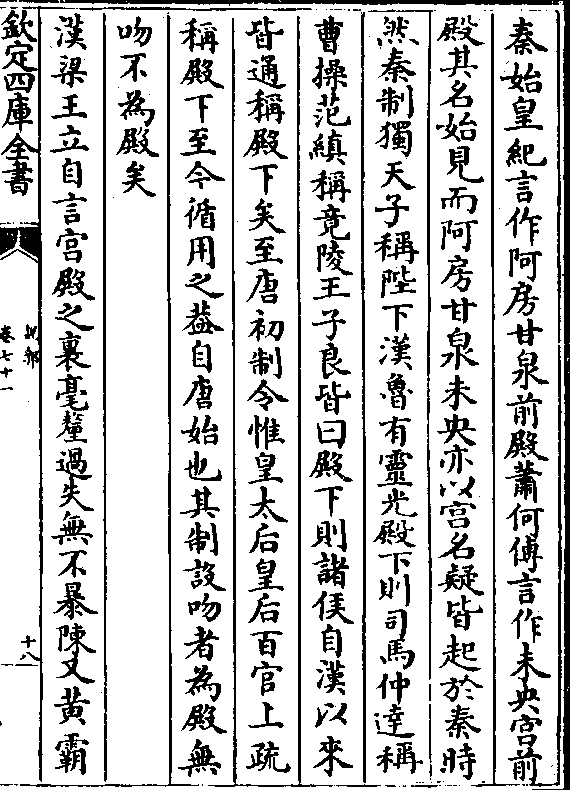 秦始皇紀言作阿房甘泉前殿蕭何傅言作未央宫前
殿其名始見而阿房甘泉未央亦以宫名疑皆起於秦時
然秦制獨天子稱陛下漢魯有靈光殿下則司馬仲達稱
曹操范縝稱竟陵王子良皆曰殿下則諸侯自漢以來
皆通稱殿下矣至唐初制令惟皇太后皇后百官上疏
稱殿下至今循用之葢自唐始也其制設吻者為殿無
吻不為殿矣
漢梁王立自言宫殿之裏毫釐過失無不暴陳又黄霸
欽定四庫全書
說郛
卷七十一
十八